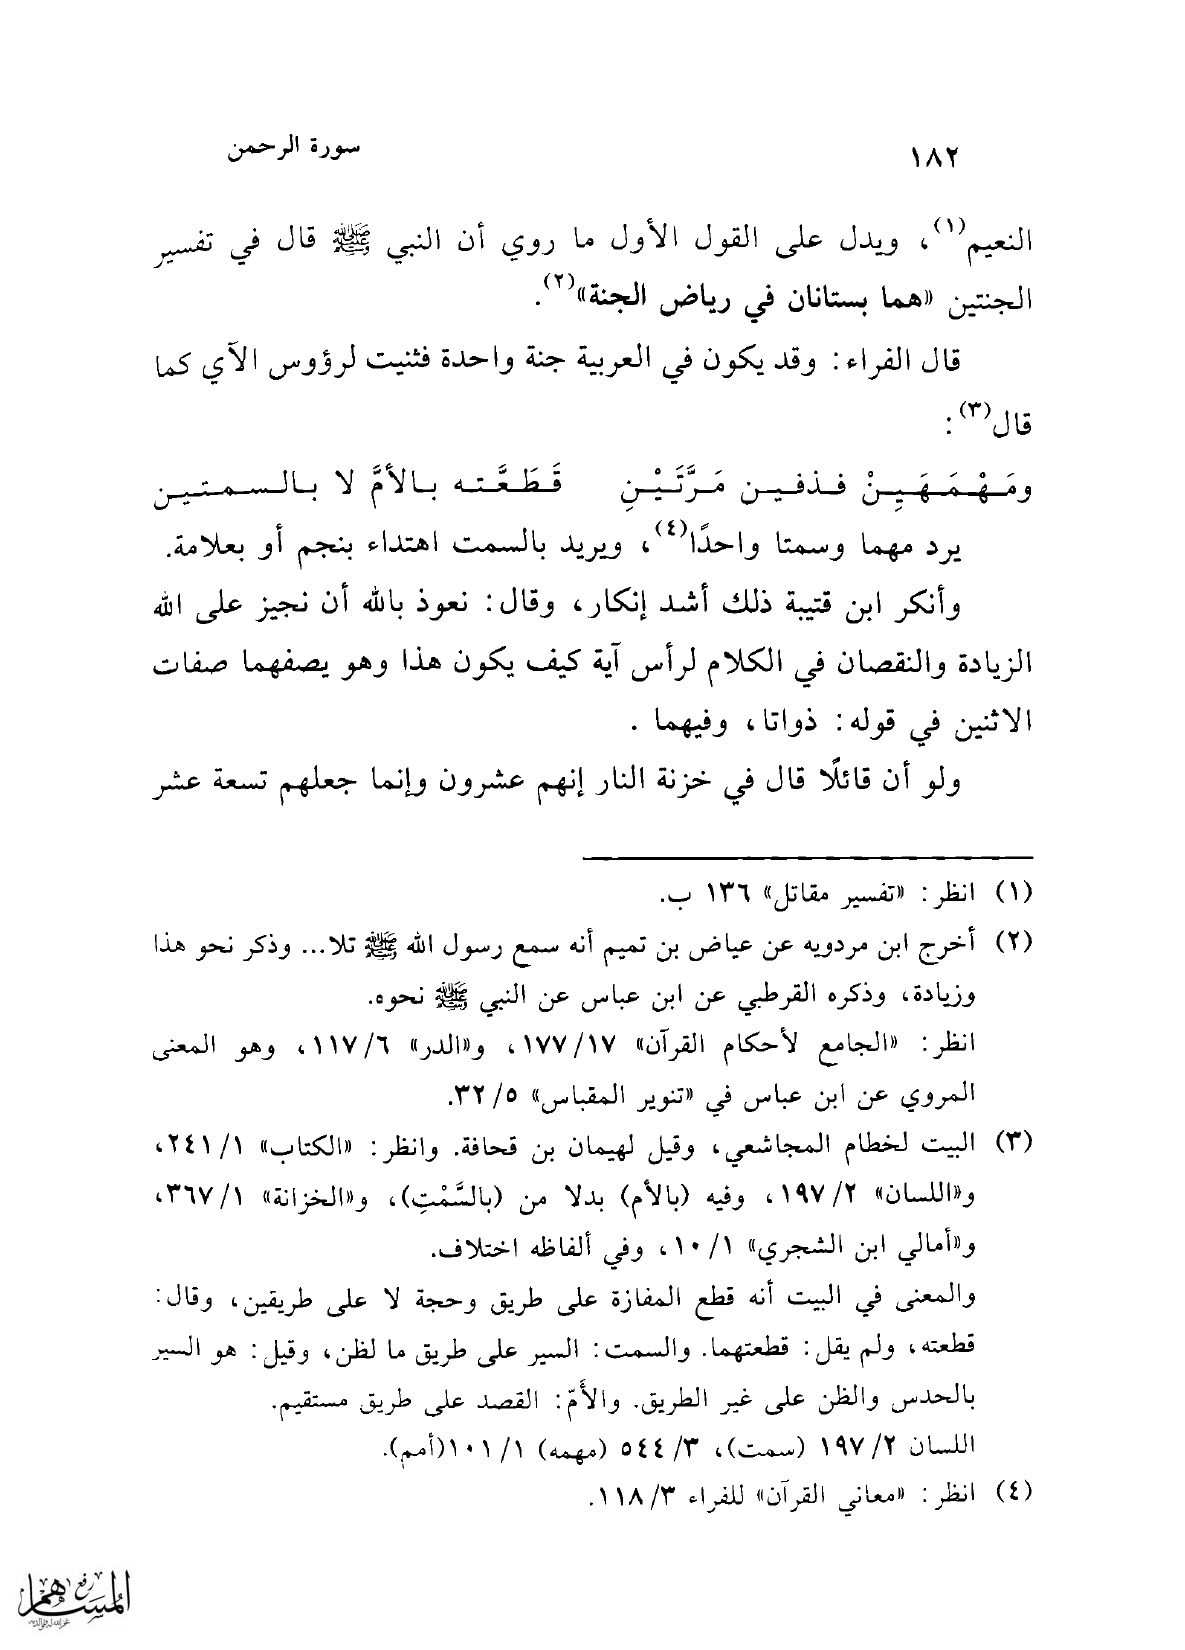 ١٨٢
سورة الرحمن
النعيم(١)، ويدل على القول الأول ما روي أن النبي ﷺ قال في تفسير
الجنتين «هما بستانان في رياض الجنة»(٢).
قال الفراء: وقد يكون في العربية جنة واحدة فثنيت لرؤوس الآي كما
قال(٣):
ومَـهْـمَـهَـيِـنْ فـذفـيـن مَـرَّتَـيْـنِ قَـطَـعَّـتـه بـالأمَّ لا بـالـسمـتـيـن
يرد مهما وسمتا واحدًا(٤)، ويريد بالسمت اهتداء بنجم أو بعلامة.
وأنكر ابن قتيبة ذلك أشد إنكار، وقال: نعوذ بالله أن نجيز على الله
الزيادة والنقصان في الكلام لرأس آية كيف يكون هذا وهو يصفهما صفات
الاثنين في قوله: ذواتا، وفيهما .
ولو أن قائلًا قال في خزنة النار إنهم عشرون وإنما جعلهم تسعة عشر
(١) انظر: «تفسير مقاتل» ١٣٦ ب.
(٢) أخرج ابن مردويه عن عياض بن تميم أنه سمع رسول الله ﷺ تلا... وذكر نحو هذا
وزيادة، وذكره القرطبي عن ابن عباس عن النبي ﷺ نحوه.
انظر: «الجامع لأحكام القرآن» ١٧/١٧٧، و«الدر» ٦/١١٧، وهو المعنى
المروي عن ابن عباس في «تنوير المقباس» ٥/٣٢.
(٣) البيت لخطام المجاشعي، وقيل لهيمان بن قحافة. وانظر: «الكتاب» ١/٢٤١،
و«اللسان» ٢/١٩٧، وفيه (بالأم) بدلا من (بالسَّمْتِ)، و«الخزانة» ١/٣٦٧،
و«أمالي ابن الشجري» ١/١٠، وفي ألفاظه اختلاف.
والمعنى في البيت أنه قطع المفازة على طريق وحجة لا على طريقين، وقال:
قطعته، ولم يقل: قطعتهما. والسمت: السير على طريق ما لظن، وقيل: هو السير
بالحدس والظن على غير الطريق. والأَمّ: القصد على طريق مستقيم.
اللسان ٢/١٩٧ (سمت)، ٣/٥٤٤ (مهمه) ١/١٠١(أمم).
(٤) انظر: «معاني القرآن» للفراء ٣/١١٨.
رفع
المساهم